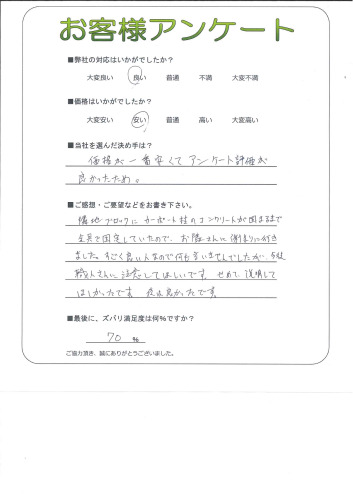 お客様アンケート
■弊社の対応はいかがでしたか？
大変良い 良い 普通 不満 大変不満
■価格はいかがでしたか？
大変安い 安い 普通 高い 大変高い
■当社を選んだ決め手は？
価格が一番安くてアンケート評価が
良かったため。
■ご感想・ご要望などをお書き下さい。
隣地ブロックにカーポート柱のコンクリートが固まるまで
工具で固定していたので、お隣さんに謝まりに行き
ました。すごく良い人なので何も言いませんでしたが、
職人さんに注意してほしいです。せめて、説明して
ほしかったです。後は良かったです。
■最後に、ズバリ満足度は何%ですか？
70 %
ご協力頂き、誠にありがとうございました。